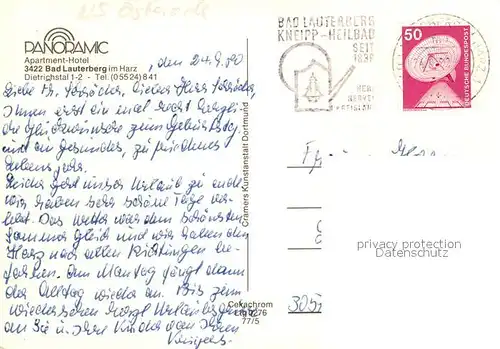 PANORAMIC
Apartment-Hotel
3422 Bad Lauterberg im Harz
Dietrichstal 1-2 - Tel. (05524) 841
, den 24.9.80
Liebe Fr. lieber Herr
Ihnen erst ein mal recht herzliche
Glückwünsche zum Geburtstag
und ein gesundes, zufriedenes
Lebensjahr.
Leider geht unser Urlaub zu ende
wir haben sehr schöne Tage ver-
lebt. Das Wetter war dem schönsten
Sommer gleich und wir haben den
Harz nach allen Richtungen be-
fahren. Am Montag fängt dann
der Alltag wieder an. Bis zum
wiedersehen Urlaubsgrüße
an Sie u. Ihre Kinder von Ihren
Cramers Kunstanstalt Dortmund
Cekachrom
77/5
BAD LAUTERBERG
KNEIPP-HEILBAD
SEIT
50
DEUTSCHE BUNDESPOST
privacy protection
Datenschutz
305